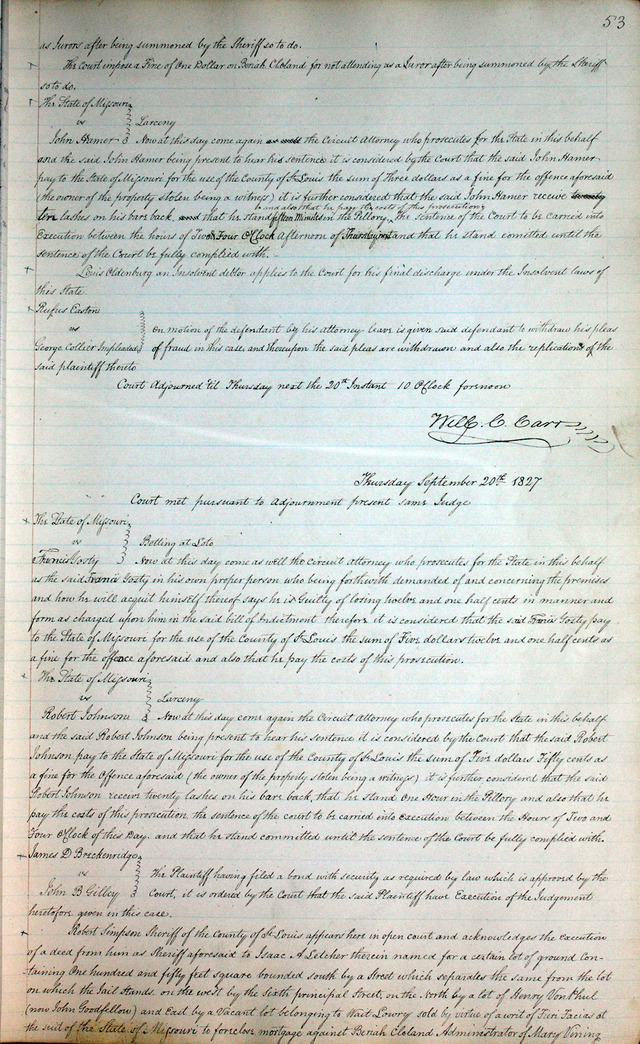 53
as Jurors after being summoned by the Sheriff so to do.
The Court impose a Fine of One Dollar on Beriah Cleland for not attending as a Juror after being summoned by the Sheriff
so to do.
The State of Missouri
vs Larceny
John Hamer Now at this day come again as well the Circuit Attorney who prosecutes for the State in this behalf
and the said John Hamer being present to hear his sentence it is considered by the Court that the said John Hamer
pay to the State of Missouri for the use of the County of St Louis the sum of Three dollars as a fine for the offence aforesaid
(the owner of the property stolen being a witness) it is further considered that the said John Hamer receive twenty
and also that he pay the costs of this prosecution
ten lashes on his bare back, and that he stand fifteen Minutes in the Pillory, The sentence of the Court to be carried into
Execution between the hours of Two & Four O'Clock Afternoon of Thursday next and that he stand comitted until the
sentence of the Court be fully complied with.
Louis Oldenburg an Insolvent debtor applies to the Court for his final discharge under the Insolvent laws of
this State
Rufus Easton
vs On motion of the defendant by his Attorney leave is given said defendant to withdraw his pleas
George Collier Impleaded of fraud in this case, and thereupon the said pleas are withdrawn and also the replications of the
said plaintiff thereto
Court Adjourned til Thursday next the 20th Instant 10 O'Clock forenoon
Will. C. Carr
Thursday September 20th 1827
Court met pursuant to Adjournment present same Judge
The State of Missouri
vs Betting at Loto
Francis Gosty Now at this day come as well the Circuit attorney who prosecutes for the State in this behalf
as the said Francis Gosty in his own proper person who being forthwith demanded of and concerning the premises
and how he will acquit himself thereof says he is Guilty of losing twelve and one half cents in manner and
form as charged upon him in the said bill of Indictment therefore it is considered that the said Francis Gosty pay
to the State of Missouri for the use of the County of St Louis the sum of Five dollars twelve and one half cents as
a fine for the offence aforesaid and also that he pay the costs of this prosecution.
The State of Missouri
vs Larceny
Robert Johnson Now at this day come again the Circuit Attorney who prosecutes for the State in this behalf
and the said Robert Johnson being present to hear his sentence it is considered by the Court that the said Robert
Johnson pay to the State of Missouri for the use of the County of St Louis the sum of Five dollars Fifty cents as
a fine for the Offence aforesaid (the owner of the property stolen being a witness) it is further considered that the said
Robert Johnson receive twenty lashes on his bare back, that he stand One Hour in the Pillory and also that he
pay the costs of this prosecution the sentence of the court to be carried into execution between the Hours of Two and
Four O'Clock of this Day. and that he stand committed until the sentence of the Court be fully complied with.
James D Breckenridge
vs The Plaintiff having filed a bond with security as required by law which is approved by the
John B Gilley Court, it is ordered by the Court that the said Plaintiff have Execution of the Judgement
heretofore given in this case.
Robert Simpson Sheriff of the County of St Louis appears here in open court and acknowledges the execution
of a deed from him as Sheriff aforesaid to Isaac A Letcher therein named for a certain lot of ground Con-
taining One hundred and fifty feet square bounded south by a Street which separates the same from the lot
on which the Jail Stands. on the west by the Sixth principal Street, on the North by a lot of Henry Von Phul
(now John Goodfellow) and East by a Vacant lot belonging to Wait Lowry sold by virtue of a writ of Fieri Facias at
the suit of the State of Missouri to foreclose mortgage against Beriah Cleland Administrator of Mary Vining